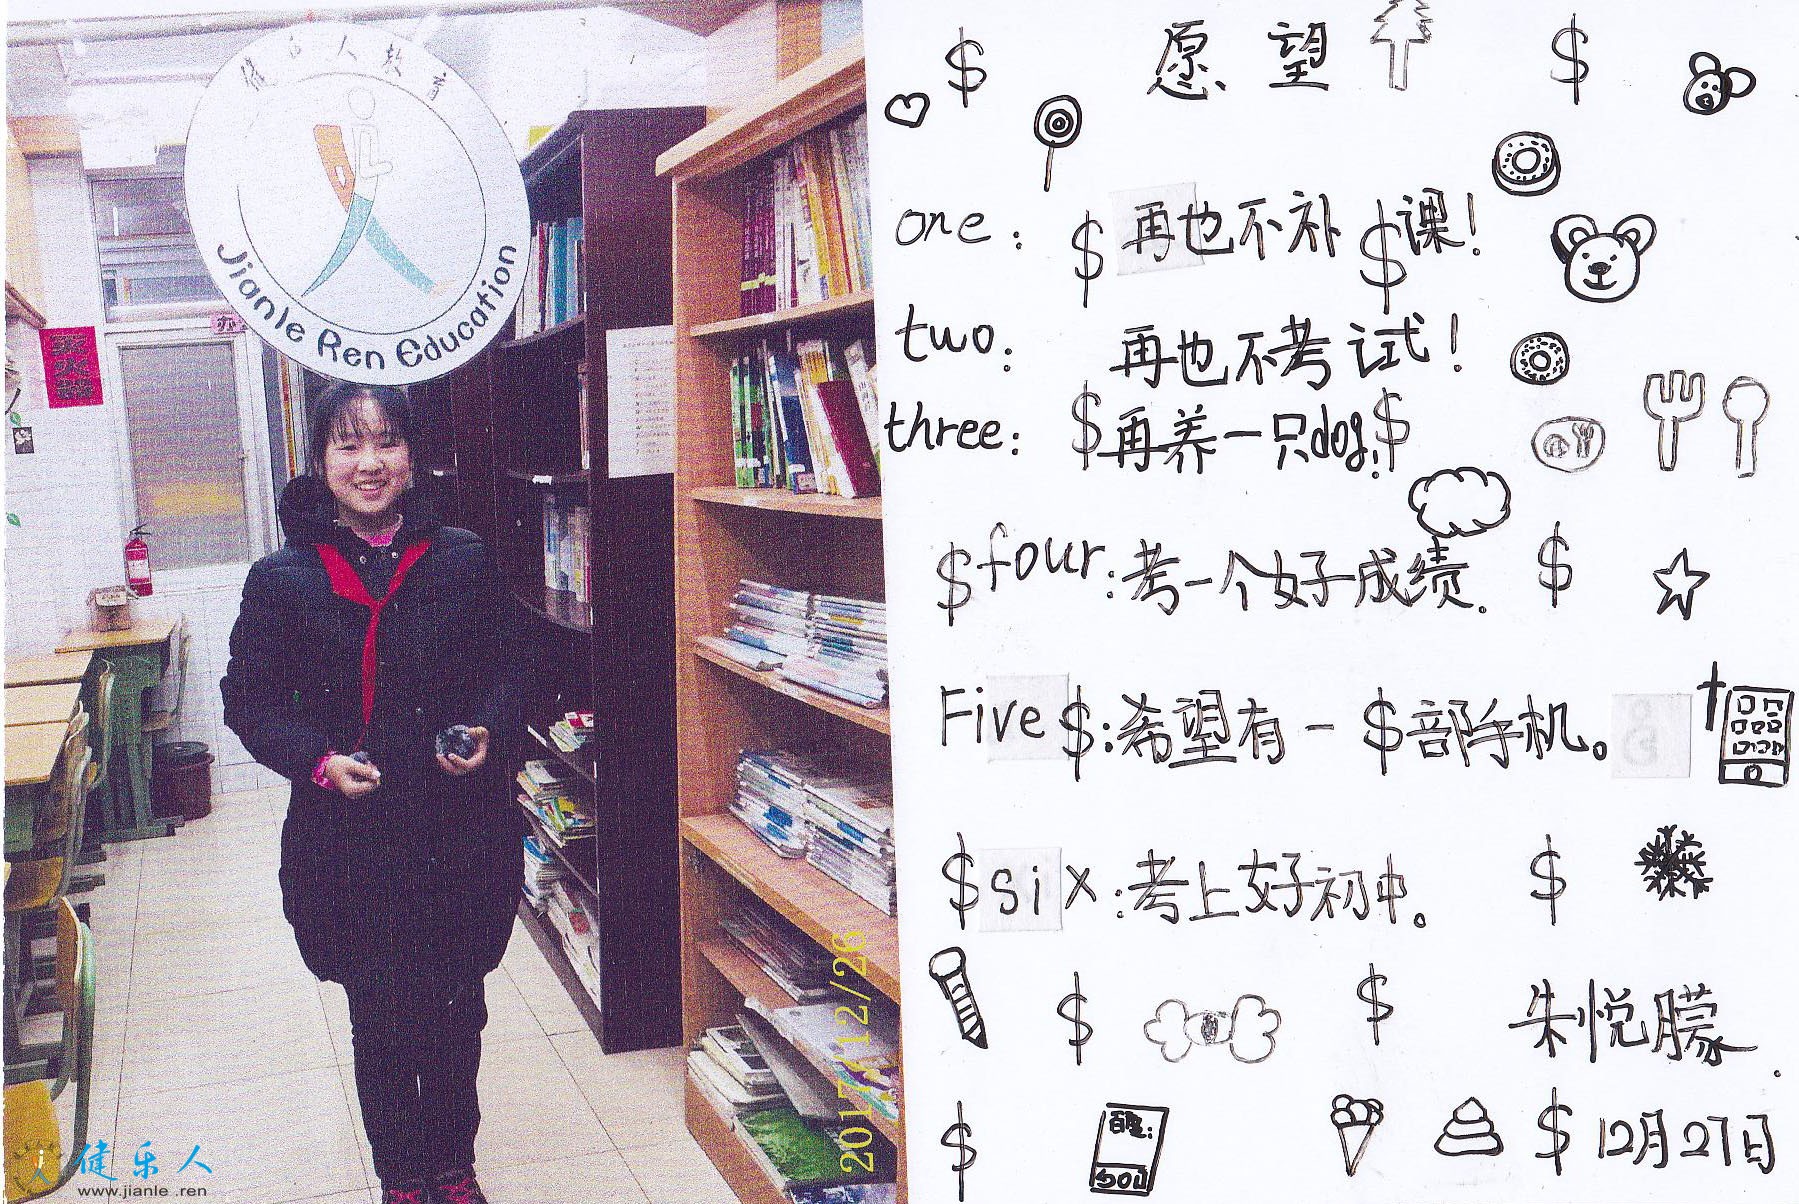 健乐人教育
Jianle Ren Education
2017/12/26
健乐人
www.jianle.ren
$ 愿望 $
one: $ 再也不补 $ 课!
two: 再也不考试!
three: $ 再养一只dog. $
$ four: 考一个好成绩. $
Five $: 希望有一 $ 部手机。
$ six: 考上好初中。 $
$ $ 朱悦朦
$ $ 12月27日